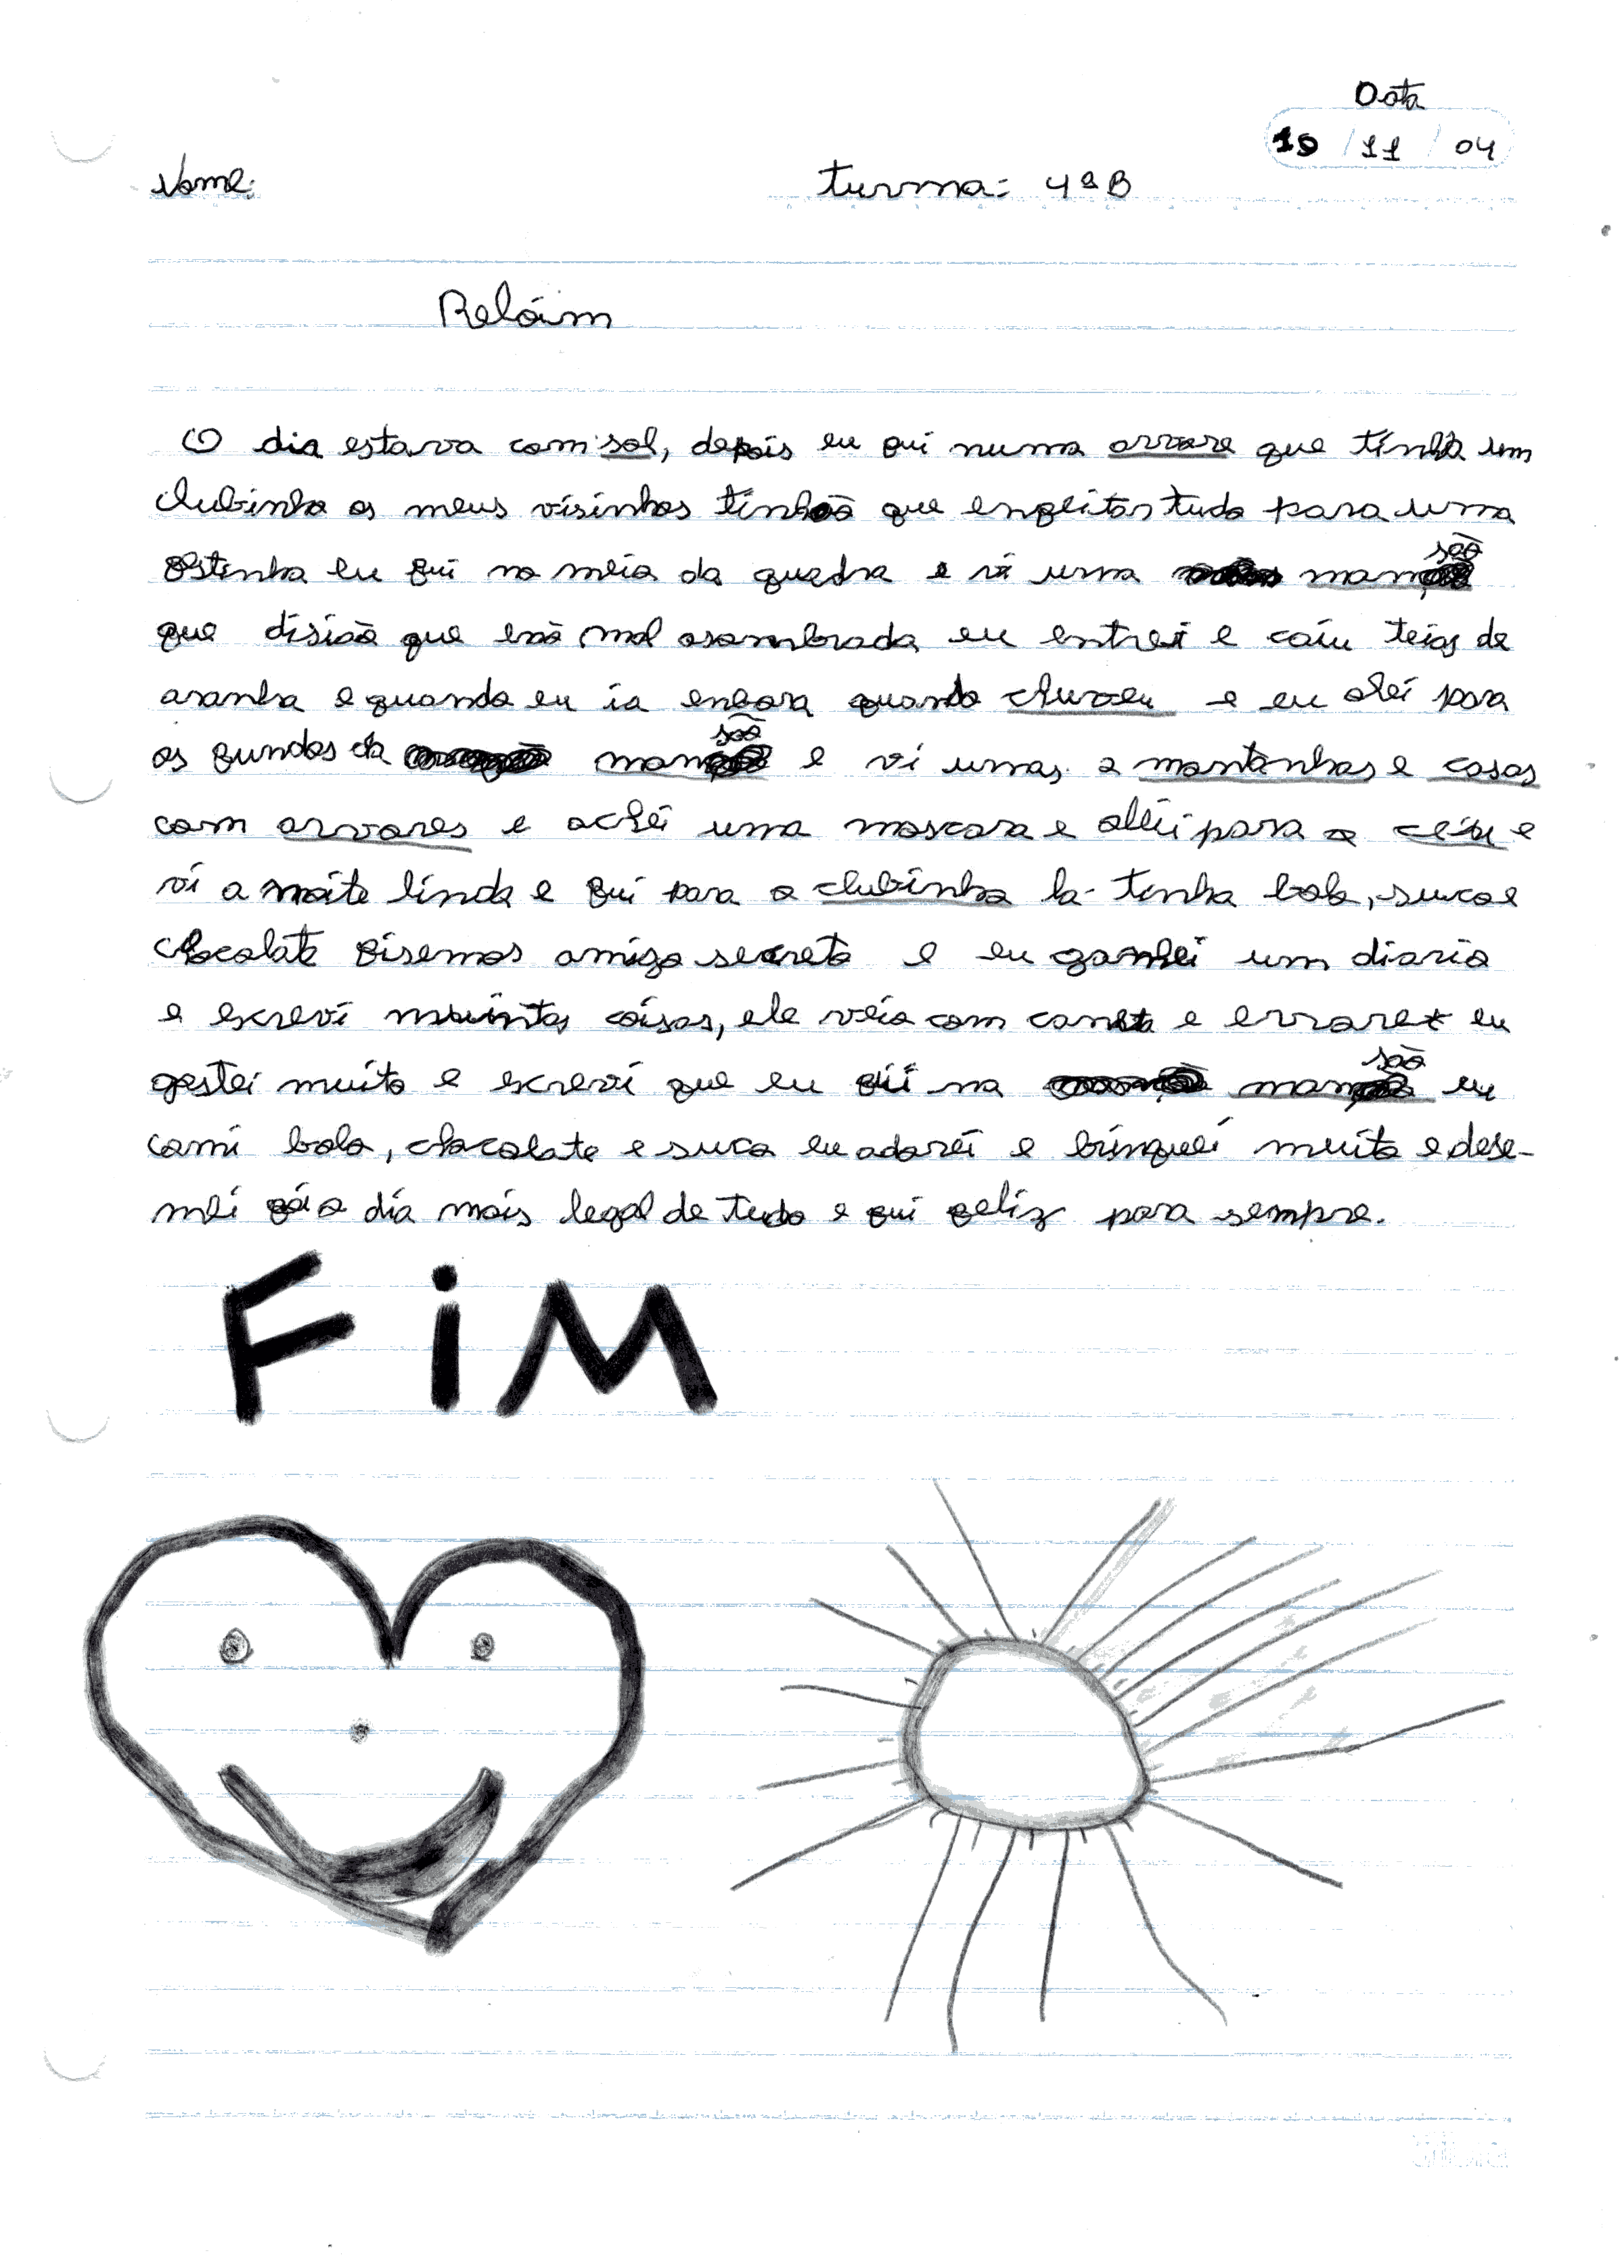 Data
19 / 11 / 04
Nome: turma: 4ª B
Relóim
O dia estava com sol, depois eu fui numa arvore que tinha um
clubinho os meus visinhos tinhão que enfeitar tudo para uma
festinha eu fui no meio da quadra e vi uma mansão
que disião que erão mal asombrada eu entrei e caiu teias de
aranha e quando eu ia enbora quando chuveu e eu olei para
os fundos da mansão e vi umas 2 montanhas e casas
com arvores e achei uma mascara e olhei para o céu e
vi a noite linda e fui para o clubinho la tinha bolo, suco e
chocolate fisemos amigo secreto e eu ganhei um diario
e escrevi muintas coisas, ele véio com caneta e errorex eu
gostei muito e escrevi que eu fui na mansão eu
comi bolo, chocolate e suco eu adorei e brinquei muito e dese-
nhei foi o dia mais legal de tudo e fui feliz para sempre.
FiM